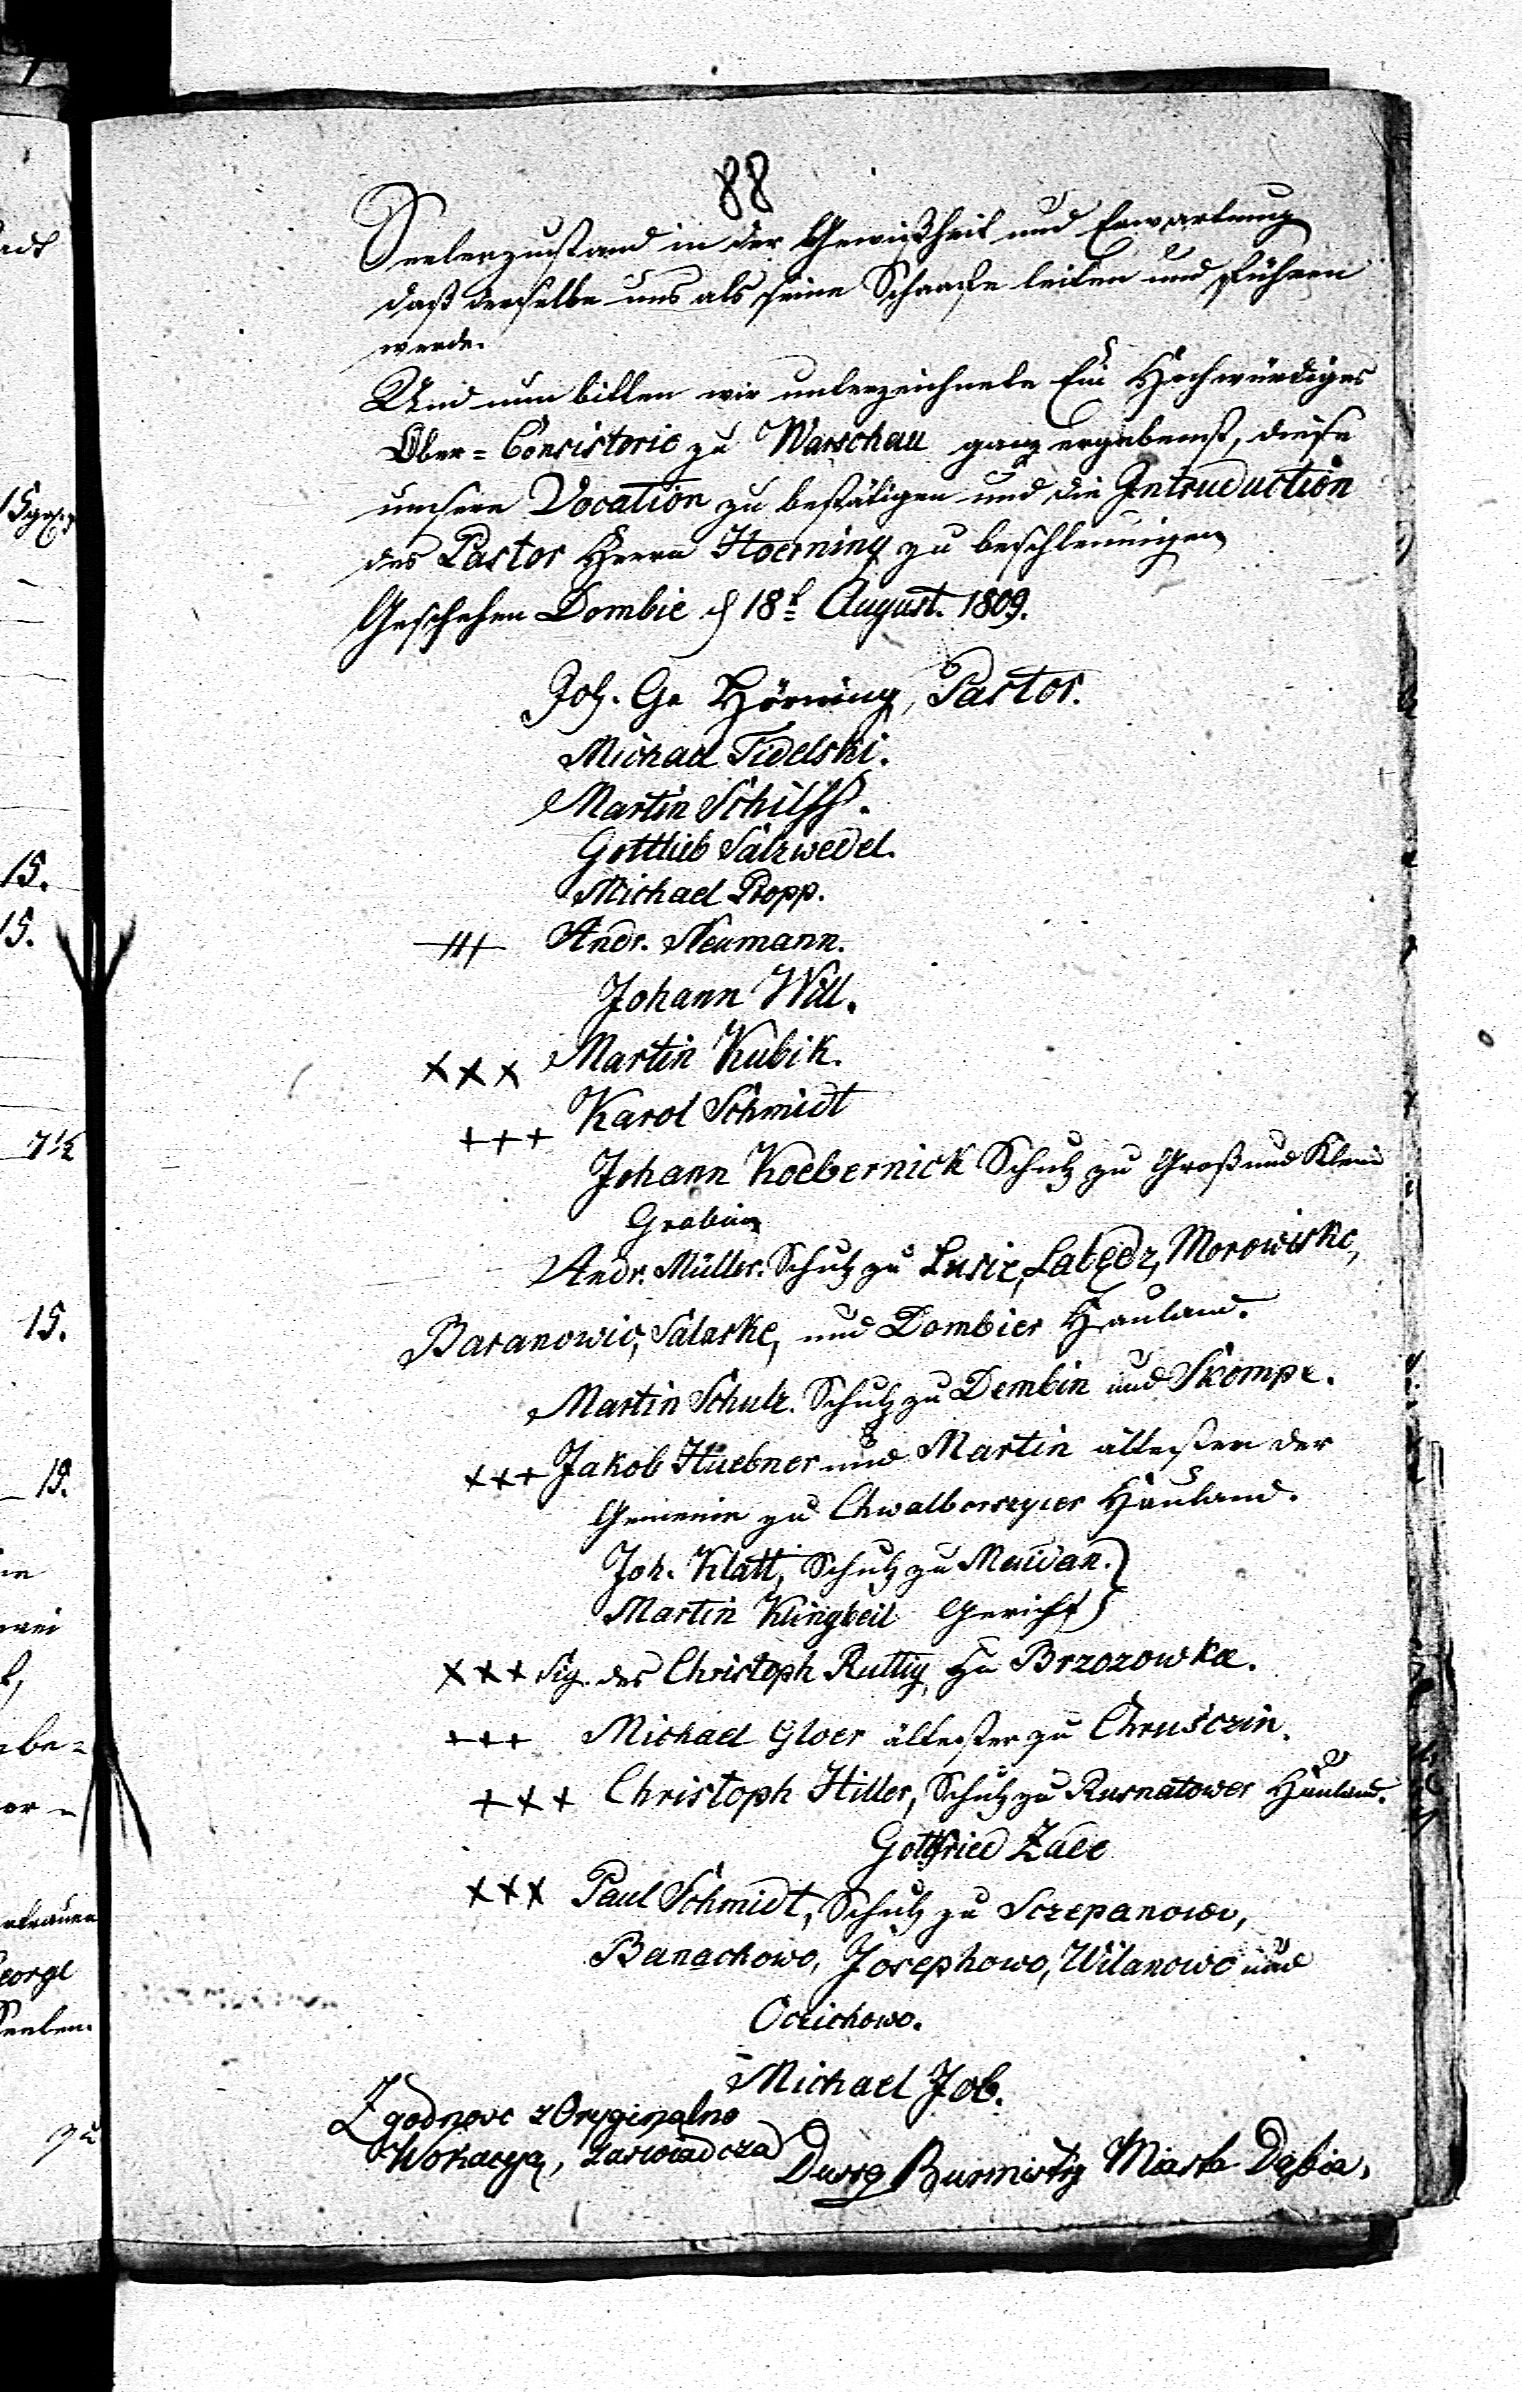 88
Seelenzustand in der Gewißheit und Erwartung
daß derselbe uns als seine Schaafe leiten und führen
werde.
Und nun bitten wir unterzeichnete Ein Hochwürdiges
Ober=Consistorie zu Warschau ganz ergebenst, diese
unsere Vocation zu bestätigen und die Intruduction
des Pastor Herrn Hoerning zu beschleunigen
Geschehen Dombie d 18t August. 1809.
Joh. Ge Hörning, Pastor.
Michael Fidelski.
Martin Schilff.
Gottlieb Salzwedel.
Michael Popp.
+++ Andr. Neumann.
Johann Will.
XXX Martin Kubik.
+++ Karol Schmidt
Johann Koebernick Schulz zu Groß und Klein
Grabina
Andr. Müller. Schulz zu Lusie, Labędz, Morowiske,
Baranowic, Salaske, und Dombier Hauland.
Martin Schulz. Schulz zu Dembin und Skompe.
xx+ Jakob Huebner und Martin ältesten der
Gemeine zu Chwalborszycer Hauland.
Joh. Klatt, Schulz zu Maidan.}
Martin Klingbeil Gericht}
XX+ Sig. des Christoph Ruttig zu Brzozowka.
+++ Michael Gloer ältester zu Chruśczin.
+X+ Christoph Hiller, Schulz zu Rosnatower Hauland.
Gottfried Zade
XXX Paul Schmidt, Schulz zu Sczepanowo,
Banachowo, Josephowo, Wilanowo und
Oczichowo.
Michael Job.
Zgodność z Oryginalno
Wokacyą, zaświadcza
Burmistrz Miasta Dąbia.
15.
15.
7½
15.
15.
eorge
Seelen.
zu